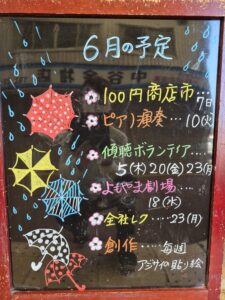 6月の予定
100円商店市…7日
ピアノ演奏…10(火)
傾聴ボランティア…
5(木)20(金)23(月)
よしやま劇場……
18(水)
全社レク……23(月)
創作……毎週
アジサイの貼り絵